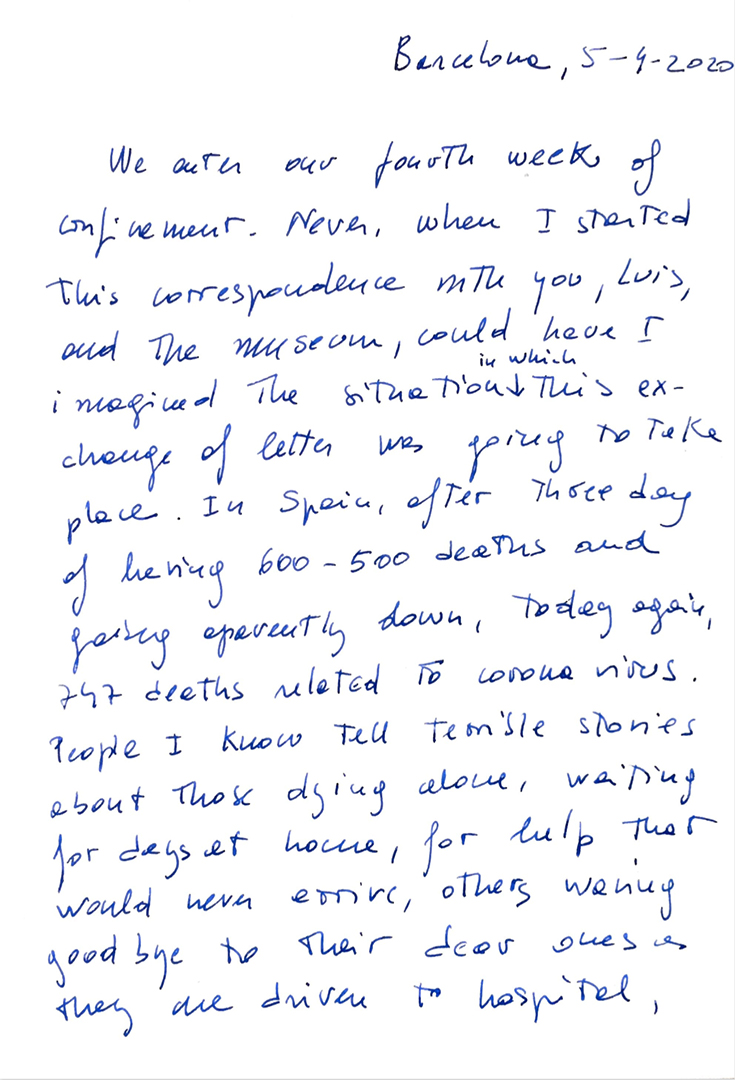 Barcelona, 5-4-2020
We enter our fourth week of
confinement. Never, when I started
this correspondence with you, Luis,
and the museum, could have I
in which
imagined the situation↓this ex-
change of letter was going to take
place. In Spain, after three day
of having 600-500 deaths and
going aparently down, today again,
747 deaths related to corona virus.
People I know tell terrible stories
about those dying alone, waiting
for days at home, for help that
would never arrive, others waving
good bye to their dear ones as
they are driven to hospital,